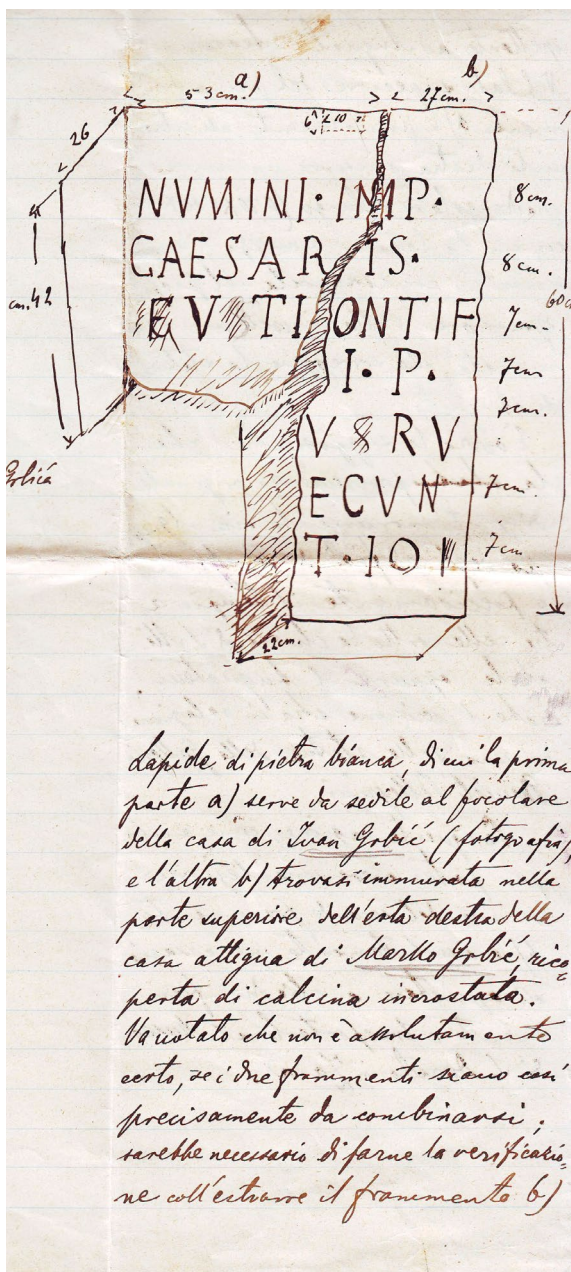 a)
b)
53 cm.
27 cm.
6
10
26
NVMINI·IMP·
8 cm.
CAESARIS·
8 cm.
cm. 42
60 c
EV TIONTIF
7 cm
I·P·
7 cm
7 cm.
V RV
Grbić
ECVN
7 cm.
T·IOI
7 cm
22 cm.
Lapide di pietra bianca, di cui la prima
parte a) serve da sedile al focolare
della casa di Ivan Grbić (fotografia),
e l'altra b) trovasi immurata nella
parte superiore dell'erta destra della
casa attigua di Marko Grbić, rico=
perta di calcina incrostata.
Va notato che non è assolutamente
certo, se i due frammenti siano così
precisamente da combinarsi;
sarebbe necessario di farne la verificazio=
ne coll'estrarre il frammento b)